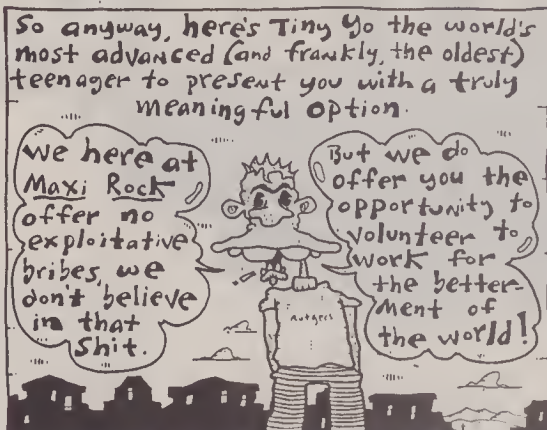 So anyway, here's Tiny Yo the world's
most advanced (and frankly, the oldest)
teenager to present you with a truly
meaningful option.
we here at
Maxi Rock
offer no
exploitative
bribes, we
don't believe
in that
Shit.
But we do
offer you the
opportunity to
volunteer to
work for
the better-
ment of
the world!
Rutgers